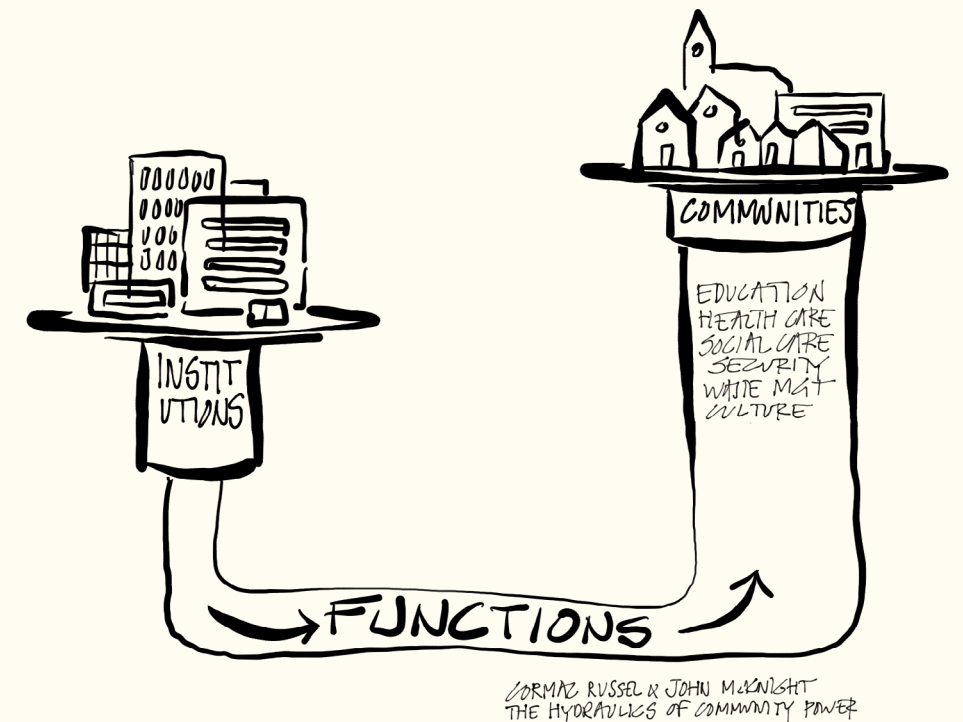 COMMUNITIES
INSTIT
UTIONS
EDUCATION
HEALTH CARE
SOCIAL CARE
SECURITY
WASTE MGT
CULTURE
FUNCTIONS
CORMAC RUSSEL & JOHN McKNIGHT
THE HYDRAULICS OF COMMUNITY POWER